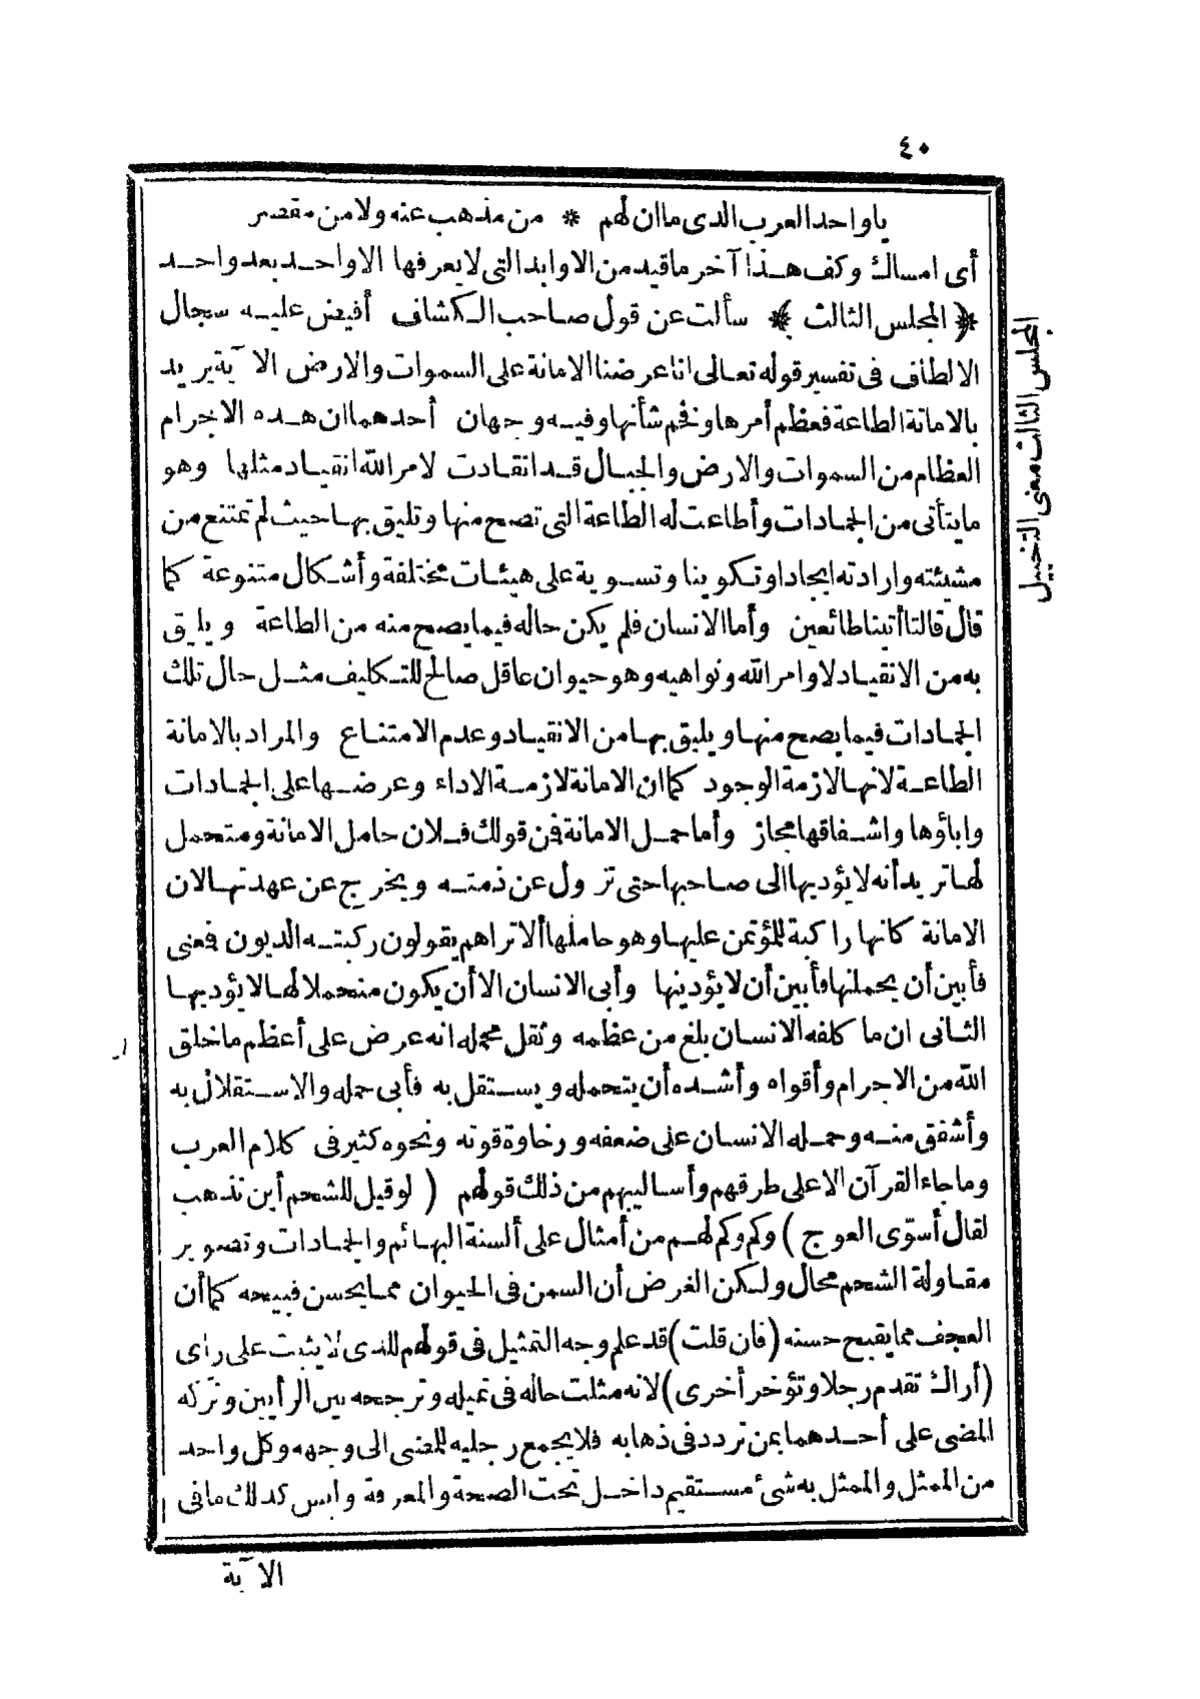 ٤٠
يا واحد العرب الذى ما ان لهم * من مذهب عنه ولا من مقصر
أى امساك وكف هذا آخر ما قيد من الاوابد التى لا يعرفها الا واحد بعد واحد
﴿المجلس الثالث﴾ سألت عن قول صاحب الكشاف أفيض عليه سجال
الالطاف فى تفسير قوله تعالى انا عرضنا الامانة على السموات والارض الآية يريد
بالامانة الطاعة فعظم أمرها وفخم شأنها وفيه وجهان أحدهما ان هذه الاجرام
العظام من السموات والارض والجبال قد انقادت لامر الله انقياد مثلها وهو
ما يتأتى من الجمادات وأطاعت له الطاعة التى تصح منها وتليق بها حيث لم تمتنع من
مشيئته وارادته ايجادا وتكوينا وتسوية على هيئات مختلفة وأشكال متنوعة كما
قال قالتا أتينا طائعين وأما الانسان فلم يكن حاله فيما يصح منه من الطاعة ويليق
به من الانقياد لاوامر الله ونواهيه وهو حيوان عاقل صالح للتكليف مثل حال تلك
الجمادات فيما يصح منها ويليق بها من الانقياد وعدم الامتناع والمراد بالامانة
الطاعة لانها لازمة الوجود كما ان الامانة لازمة الاداء وعرضها على الجمادات
واباؤها واشفاقها مجاز وأما حمل الامانة فمن قولك فلان حامل الامانة ومتحمل
لها تريد أنه لا يؤديها الى صاحبها حتى تزول عن ذمته ويخرج عن عهدتها لان
الامانة كانها راكبة للمؤتمن عليها وهو حاملها ألا تراهم يقولون ركبته الديون فمعنى
فأبين أن يحملنها فأبين أن لا يؤدينها وأبى الانسان الا أن يكون متحملا لها لا يؤديها
الثانى ان ما كلفه الانسان بلغ من عظمه وثقل محمله انه عرض على أعظم ما خلق
الله من الاجرام وأقواه وأشده أن يتحمله ويستقل به فأبى حمله والاستقلال به
وأشفق منه وحمله الانسان على ضعفه ورخاوة قوته ونحوه كثير فى كلام العرب
وما جاء القرآن الا على طرقهم وأساليبهم من ذلك قولهم (لو قيل للشحم أين تذهب
لقال أسوّى العوج) وكم وكم لهم من أمثال على ألسنة البهائم والجمادات وتصوير
مقاولة الشحم محال ولكن الغرض أن السمن فى الحيوان مما يحسن قبيحه كما أن
العجف مما يقبح حسنه (فان قلت) قد علم وجه التمثيل فى قولهم للذى لا يثبت على رأى
(أراك تقدم رجلا وتؤخر أخرى) لانه مثلت حاله فى تميله وترجحه بين الرأيين وتركه
المضى على أحدهما بمن تردد فى ذهابه فلا يجمع رجليه للمضى الى وجهه وكل واحد
من الممثل والممثل به شئ مستقيم داخل تحت الصحة والمعرفة وليس كذلك ما فى
الآية
المجلس الثالث معنى التخييل